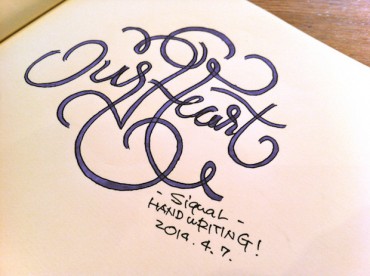 Our Heart
- Signal -
HANDWRITING!
2014. 4. 7.